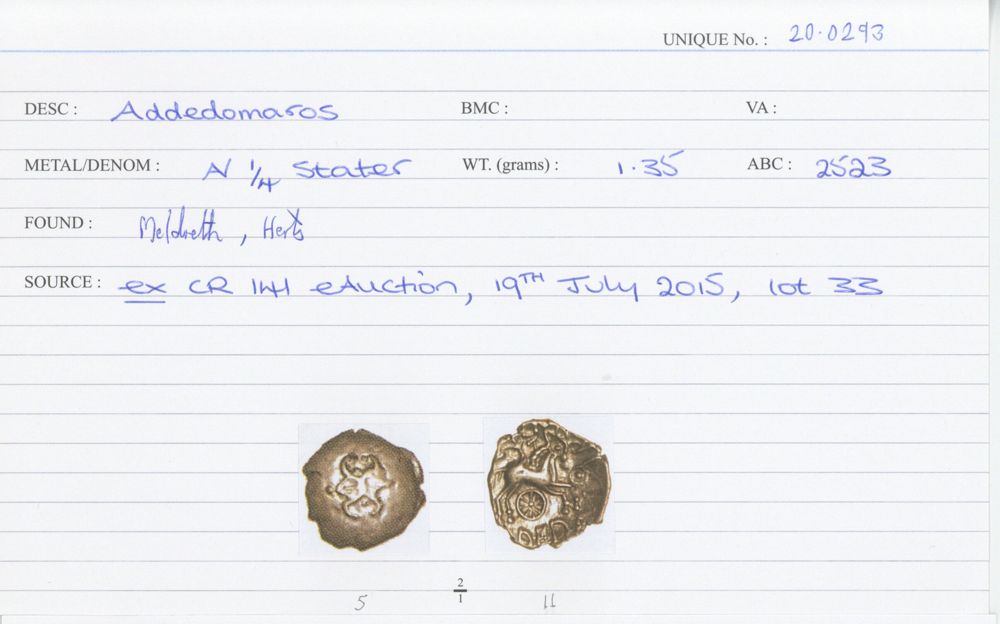 UNIQUE No. : 20.0293
DESC : Addedomaros BMC : VA :
METAL/DENOM : N 1/4 Stater WT. (grams) : 1.35 ABC : 2523
FOUND : Meldreth, Herts
SOURCE : ex CR 141 eAuction, 19TH July 2015, lot 33
2/1
5 11